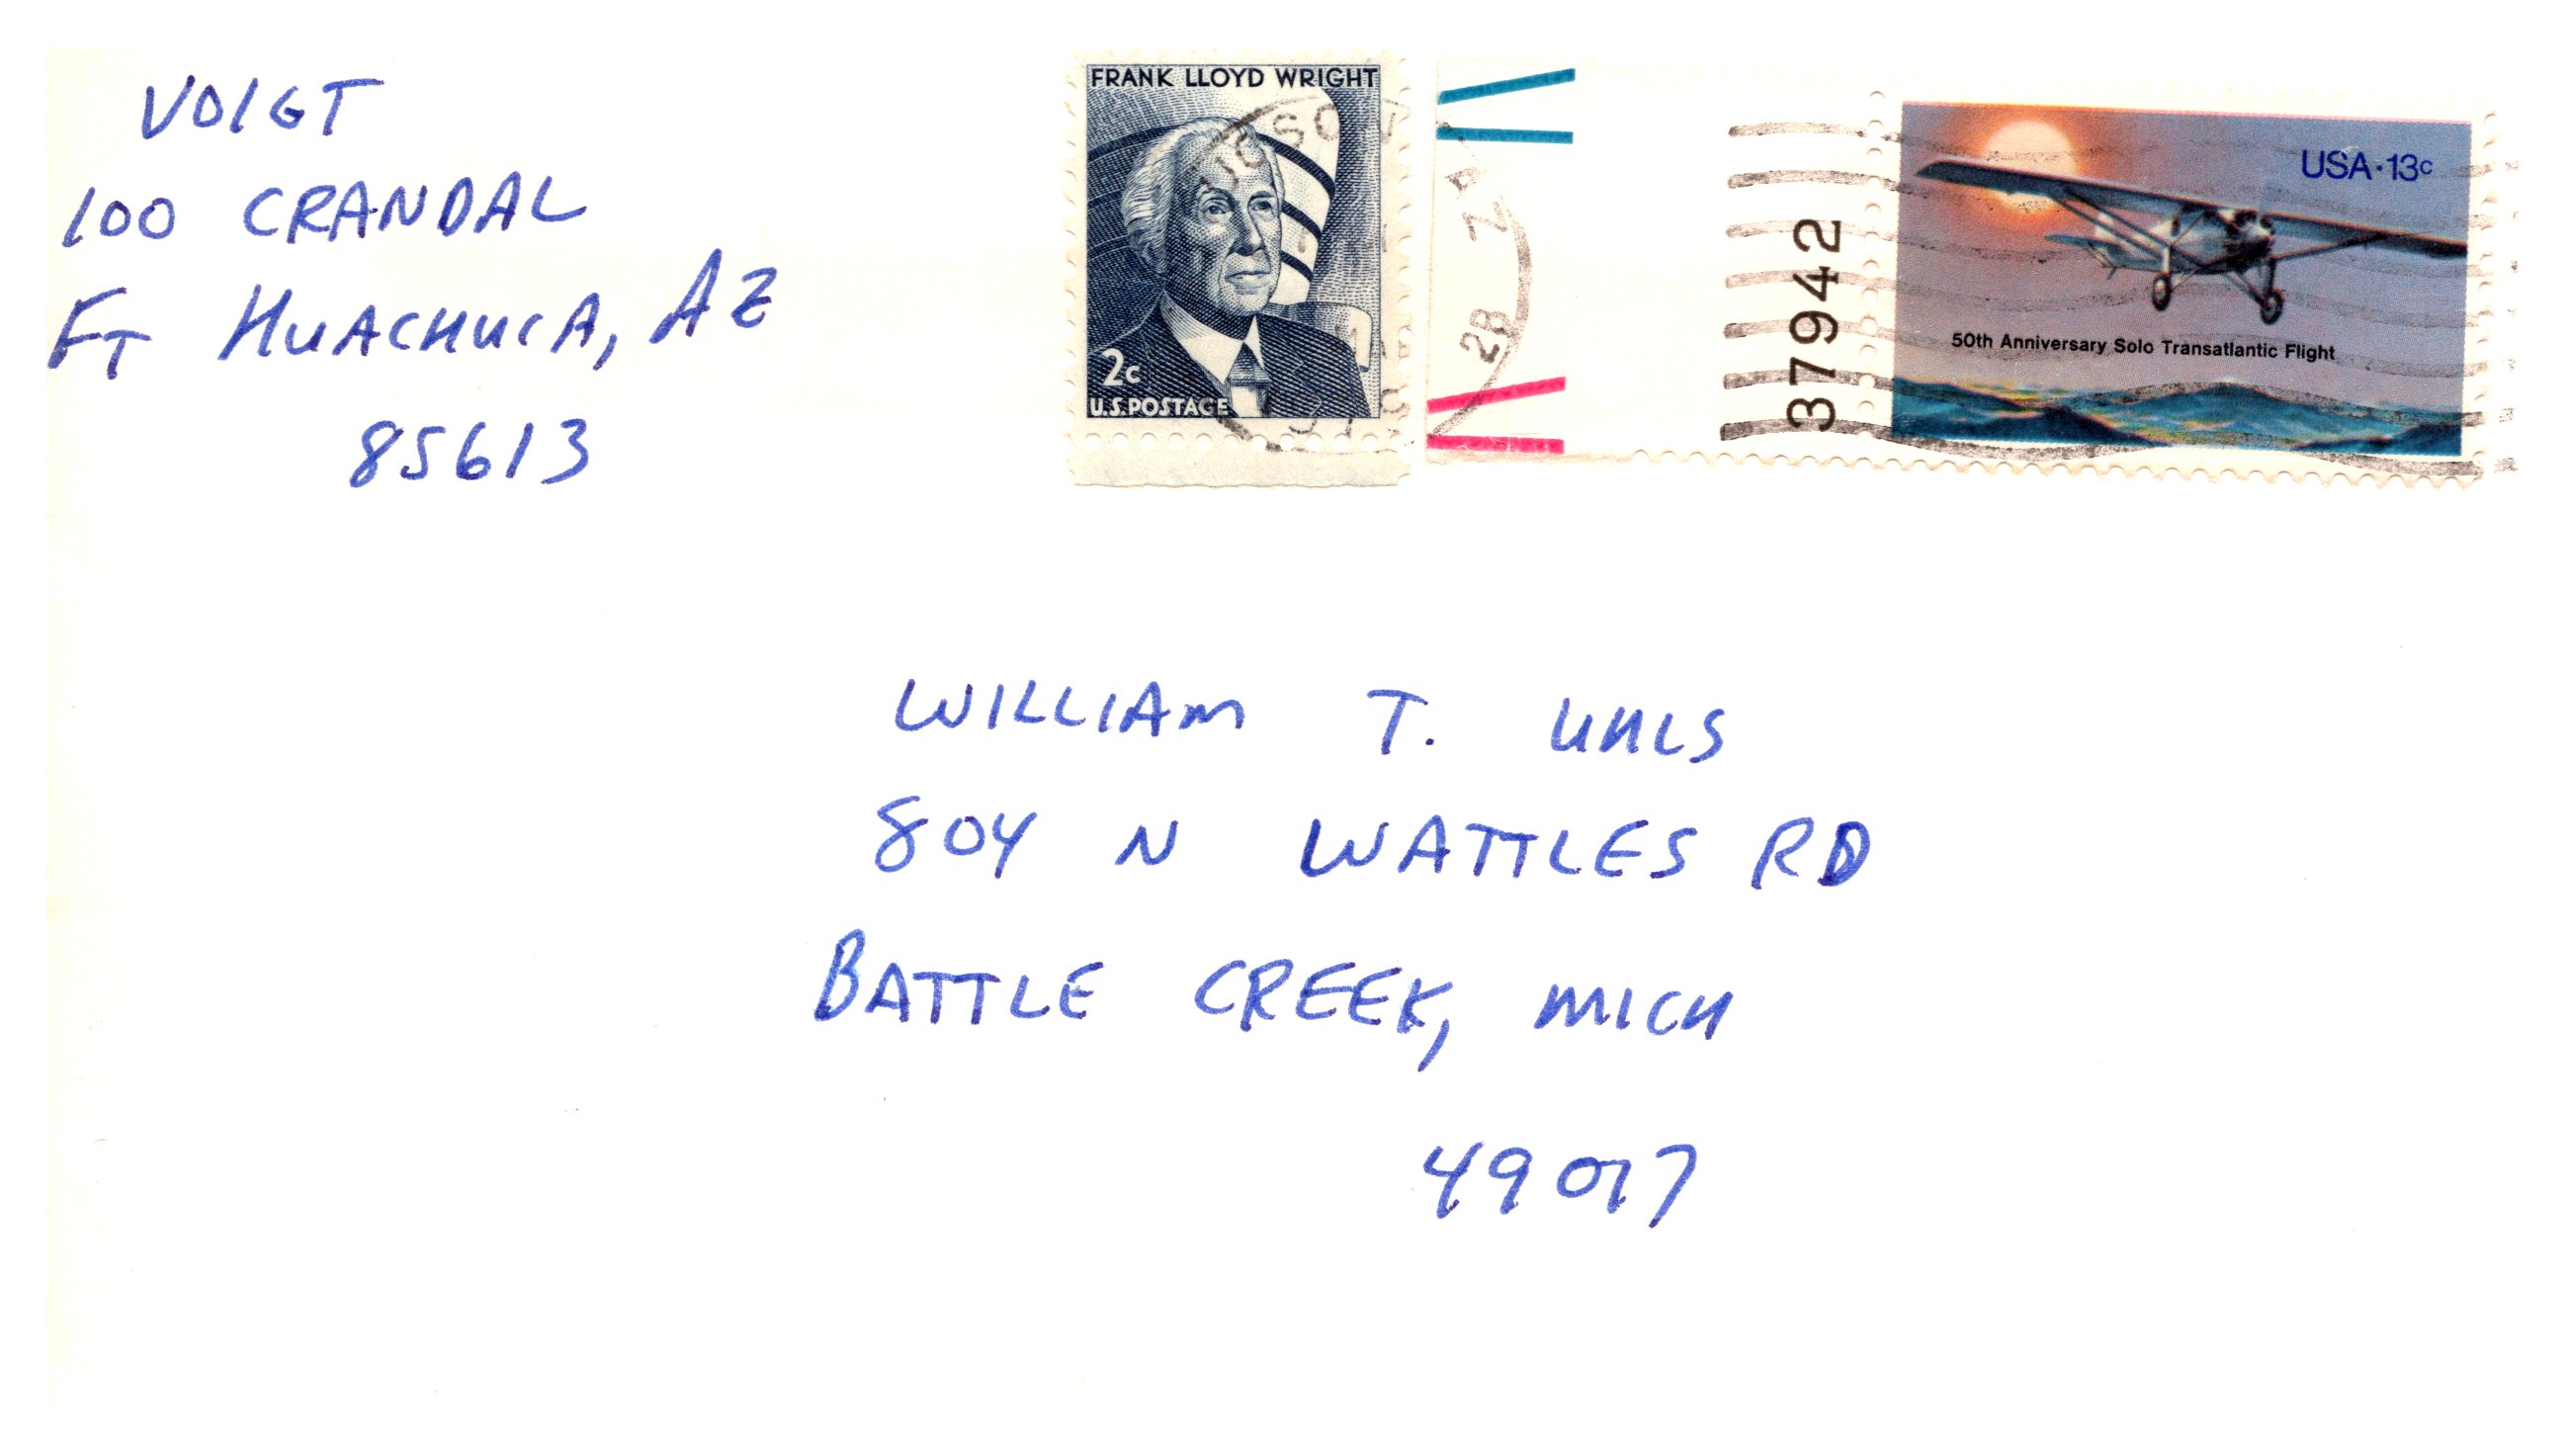 VOIGT
100 CRANDAL
FT HUACHUCA, AZ
85613
FRANK LLOYD WRIGHT
2c
U.S. POSTAGE
37942
USA·13c
50th Anniversary Solo Transatlantic Flight
WILLIAM T. UHLS
804 N WATTLES RD
BATTLE CREEK, MICH
49017